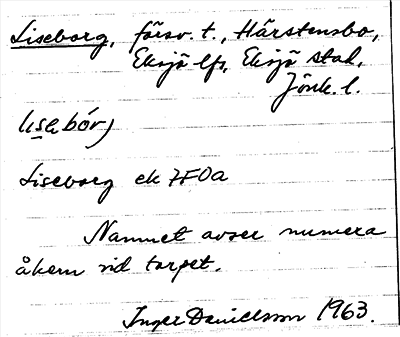 Liseborg, försv. t., Hårstensbo,
Eksjö lfs, Eksjö stad,
Jönk. l.
lisebórj
Liseborg ek 7F0a
Namnet avser numera
åkern vid torpet.
Inger Danielsson 1963.